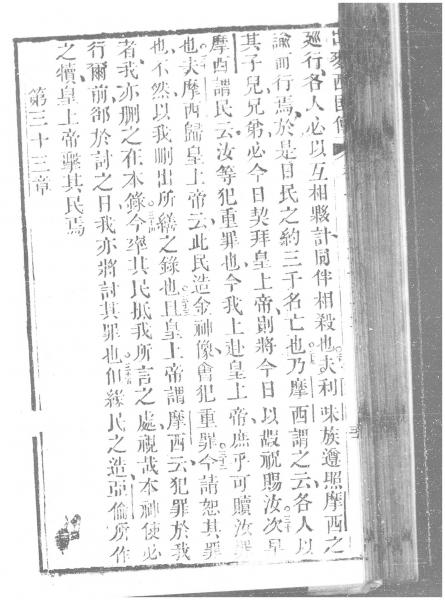 廵行、各人必以互相夥計同伴相殺也、夫利味族遵照摩西之
諭而行焉、於是日民之約三千名亡也、乃摩西謂之云、各人以
其子兒兄弟必今日契拜皇上帝、則將今日以祝賜汝、次早
摩西謂民云、汝等犯重罪也、今我上赴皇上帝、庶乎可贖汝罪
也、夫摩西歸皇上帝云、此民造金神像會犯重罪、今請恕其罪
也、不然、以我刪出所繕之錄也、且皇上帝謂摩西云、犯罪於我
者、我亦刪之在本錄、今率其民抵我所言之處、視哉、本神使必
行爾前、卻於討之日、我亦將討其罪也、但緣民之造亞倫所作
之犢、皇上帝擊其民焉
第三十三章